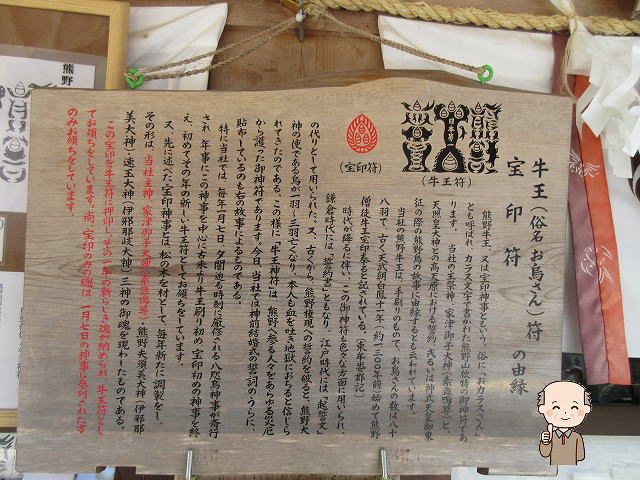 牛王(俗名お烏さん)符の由縁
宝印符
(牛王符)
(宝印符)
熊野牛王、又は宝印神事ともいう。俗に「おカラスさん」
とも呼ばれ、カラス文字で書かれた熊野山独特の御神符であ
ります。当社の主祭神・家津御子大神(素盞鳴尊)と、
天照皇大神との高天原における誓約、或るいは神武天皇御東
征の際の熊野烏の故事に由縁するとも云われています。
当社の熊野牛王は一手刷りのもので、お烏さんの数は八十
八羽で、古く天武朝白鳳十一年(約一三〇〇年前)始めて熊野
僧徒牛王宝印奉ると記されている。(東牟婁郡記)
時代が降るに伴い、この御神符も色々な方面に用いられ、
鎌倉時代には「誓約書」ともなり、江戸時代には「起誓文」
の代りとして用いられた。又、古くから、熊野権現への誓約を破ると、熊野大
神の使である烏が一羽〜三羽亡くなり、本人も血を吐き地獄におちると信じら
れてきたのである。この様に、牛王神符は、熊野へ参る人々をあらゆる災厄
から護った御神符であります。今日、当社では神前結婚式の誓詞のうらに、
貼布しているのもこの故事によるものである。
特に当社では、毎年一月七日、夕闇迫る時刻に厳修される八咫烏神事が斎行
され、年事にこの神事を中心に古来より牛王刷り初め、宝印初めの神事を終
え、初めてその年の新しい牛王符としてお頒ちをしています。
又、先に述べた宝印神事とは、松の木を材として、毎年新たに調製をし、
その形は、当社主神・家津御子大神(素盞鳴尊)・熊野夫須美大神(伊邪那
美大神)・速玉大神(伊邪那岐大神)三神の御魂を現わしたものである。
この宝印を牛王符に押印し、その一年の新らしき魂が納められ、牛王符とし
てお頒ちをしています。尚、宝印の所の魂は、一月七日の神事に参列された方
のみお頒ちをしています。
熊野